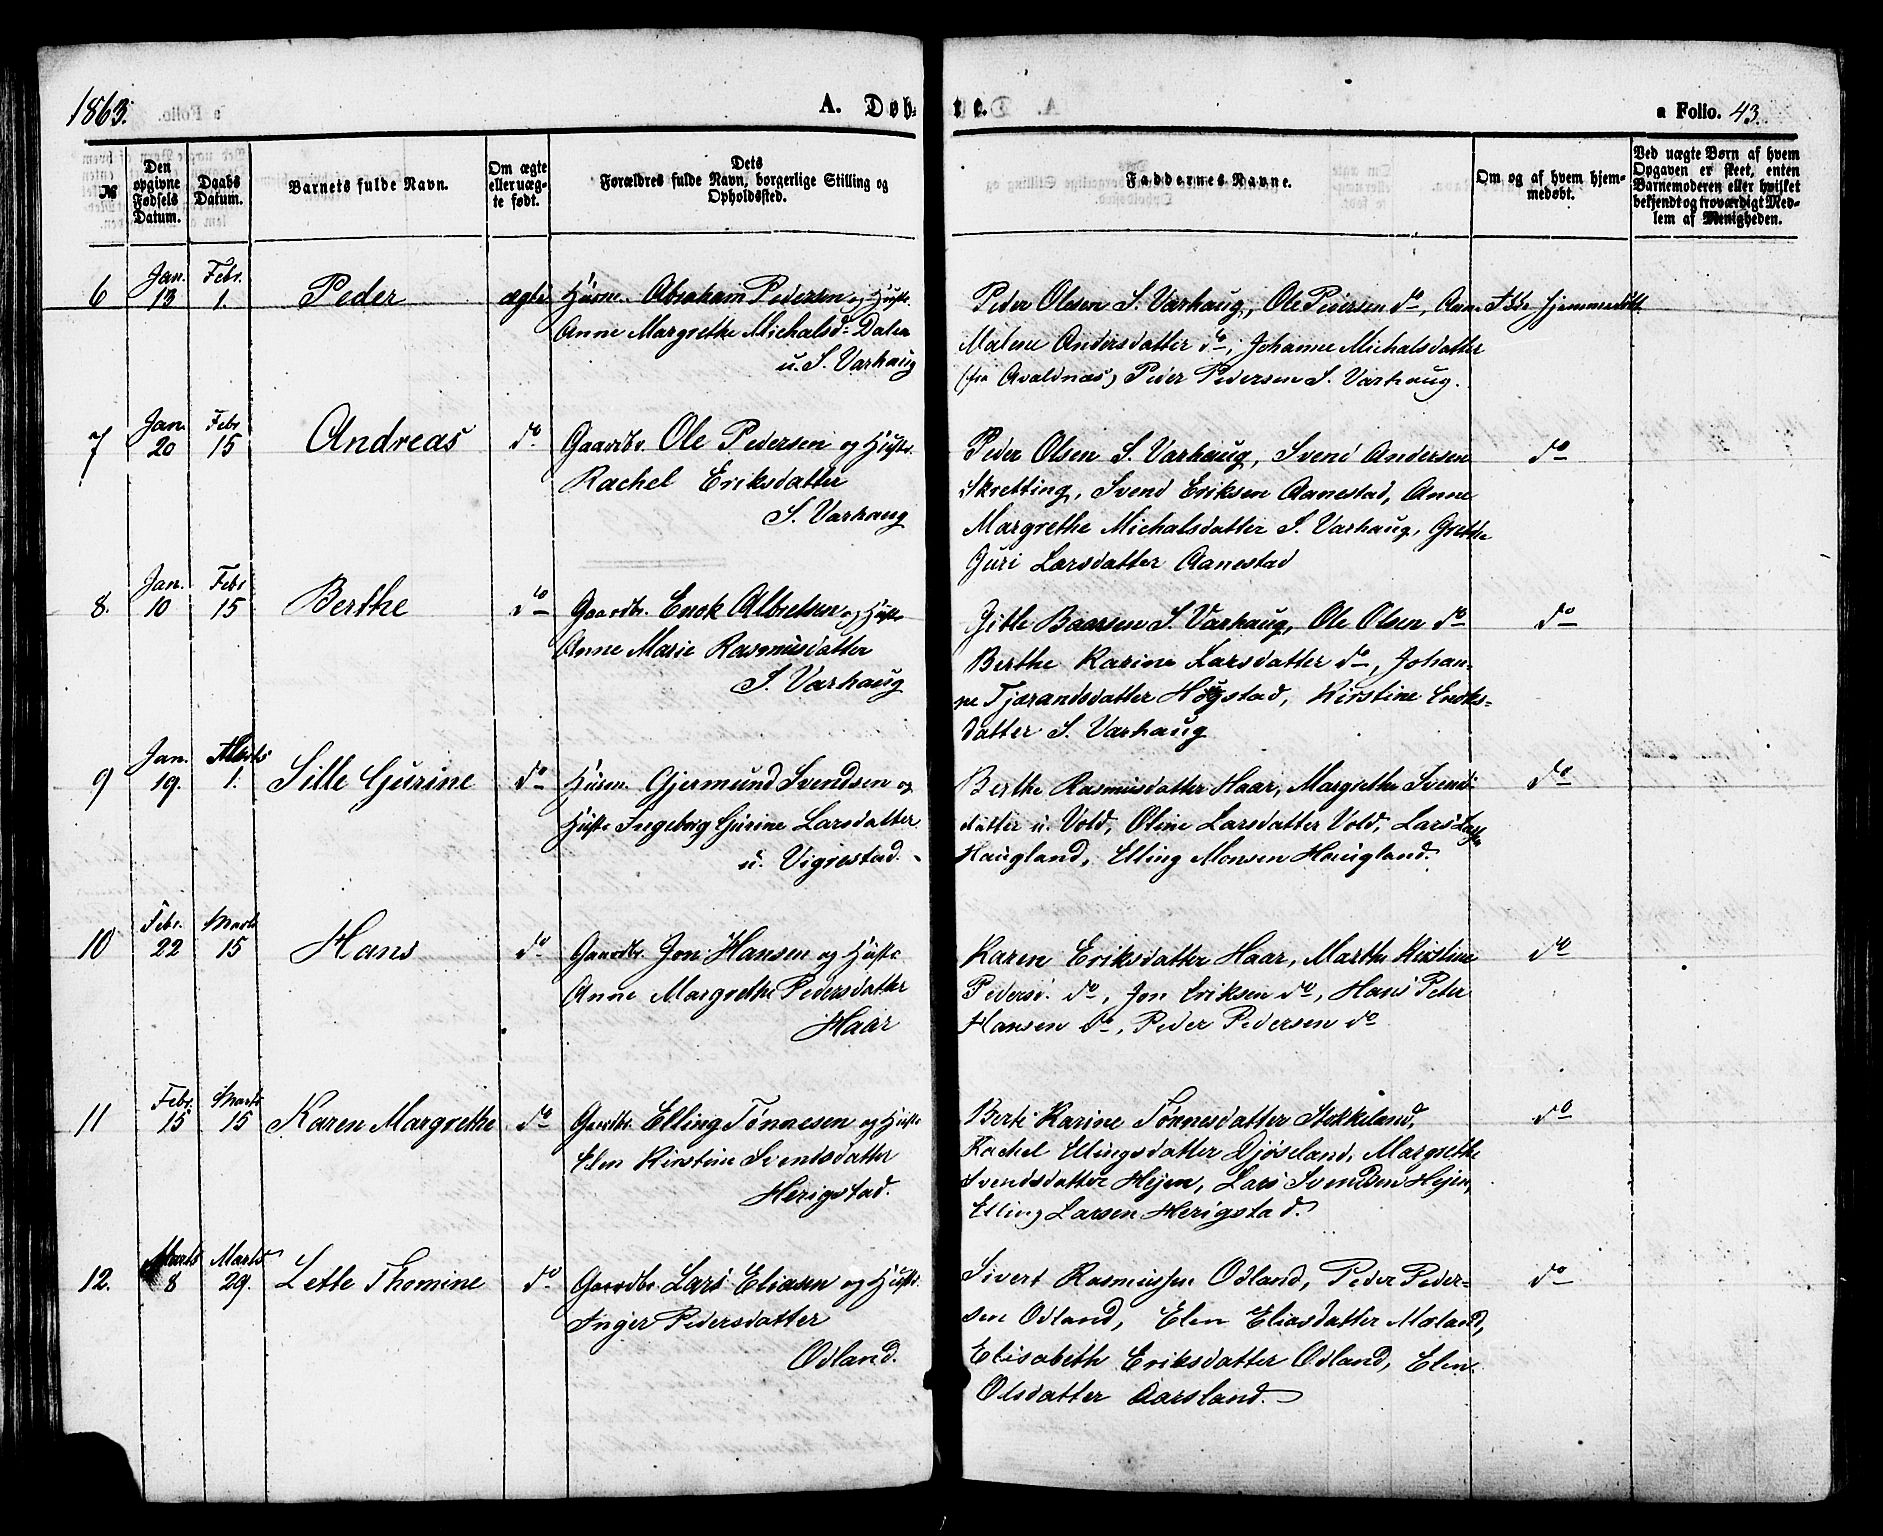 1863.
A. Døb-
te.
a Folio. 43.
№
Den opgivne Fødsels Datum.
Daabs Datum.
Barnets fulde Navn.
Om ægte eller uægte født.
Dets Forældres fulde Navn, borgerlige Stilling og Opholdssted.
Faddernes Navne.
Om og af hvem hjemmedøbt.
Ved uægte Børn af hvem Opgaven er skeet, enten Barnemoderen eller hvilket bekjendt og troværdigt Medlem af Menigheden.
6 Jan. 13 Febr. 1. Peder ægte Huusm. Abraham Pedersen og Hustr.
Anne Margrethe Michalsd: Dalen
u. S. Varhaug
Peder Olsen S. Varhaug, Ole Pedersen do, Anne Ikke hjemmedøbt
Malene Andersdatter do, Johanne Michalsdatter
(fra Avaldnæs) Peder Pedersen S. Varhaug.
7 Jan. 20 Febr 15 Andreas do. Gaardbr. Ole Pedersen og Hustr.
Rachel Eriksdatter
S. Varhaug
Peder Olsen S. Varhaug, Svend Andersen do
Skretting, Svend Eriksen Aanestad, Anne
Margrethe Michalsdatter S. Varhaug, Grethe
Guri Larsdatter Aanestad
8. Jan. 10 Febr 15 Berthe do Gaardbr. Enok Albretsen og Hustr
Anne Marie Rasmusdatter
S. Varhaug
Gitle Baarsen S. Varhaug, Ole Olsen do do
Berthe Karine Larsdatter do, Johan-
ne Tjorandsdatter Høgstad, Kirstine Enoks-
datter S. Varhaug
9 Jan. 19. Marts 1. Sille Gurine do Huusm. Gjermund Svendsen og
Hustr Ingeborg Gurine Larsdatter
u. Vigrestad.
Berthe Rasmusdatter Haar, Margrethe Svends- do
datter u. Vold, Oline Larsdatter Vold, Lars
Haugland, Elling Monsen Haugland.
10 Febr. 22 Marts 15 Hans do Gaardbr. Jon Hansen og Hustr
Anne Margrethe Pedersdatter
Haar
Karen Eriksdatter Haar, Marthe Kirstine do
Pedersd. do, Jon Eriksen do, Hans Peter
Hansen do, Peder Pedersen do
11 Febr. 15 Marts 15 Karen Margrethe do Gaardbr. Elling Tønnesen og Hustr
Elen Kirstine Svendsdatter
Herigstad.
Berte Karine Tønnesdatter Stokkeland, do
Rachel Ellingsdatter Djøseland, Margrethe
Svendsdatter Hejen, Lars Svendsen Hejen,
Elling Larsen Herigstad.
12. Marts 8 Marts 29. Lette Thomine do Gaardbr Lars Eliasen og Hustr.
Inger Pedersdatter
Odland.
Sivert Rasmussen Odland, Peder Peder- do
sen Odland, Elen Eliasdatter Mæland,
Elisabeth Eriksdatter Odland, Elen
Olsdatter Aarsland.